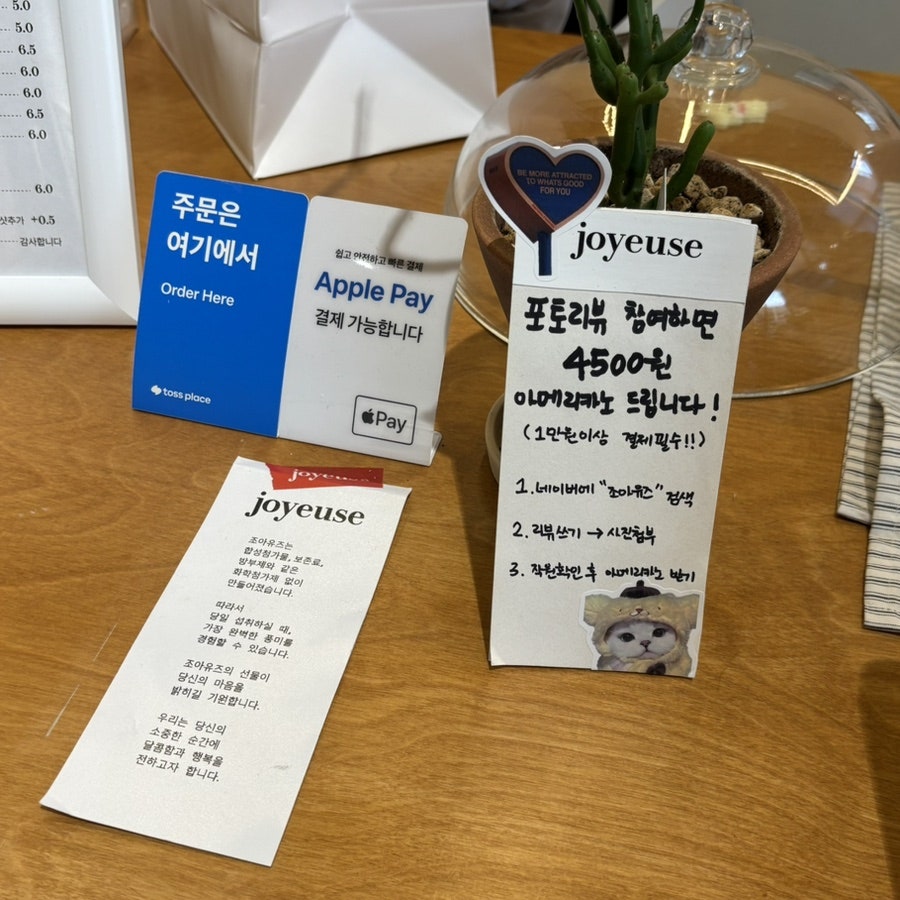 5.0
5.0
6.5
6.0
6.0
6.5
6.0
6.0
샷추가 +0.5
감사합니다
주문은
여기에서
Order Here
toss place
쉽고 안전하고 빠른 결제
Apple Pay
결제 가능합니다
Pay
BE MORE ATTRACTED
TO WHATS GOOD
FOR YOU
joyeuse
포토리뷰 참여하면
4500원
아메리카노 드립니다!
(1만원이상 결제필수!!)
1. 네이버에 "조아유즈" 검색
2. 리뷰쓰기 → 사진첨부
3. 직원확인 후 아메리카노 받기
joyeuse
joyeuse
조아유즈는
합성첨가물, 보존료,
방부제와 같은
화학첨가제 없이
만들어졌습니다.
따라서
당일 섭취하실 때,
가장 완벽한 풍미를
경험할 수 있습니다.
조아유즈의 선물이
당신의 마음을
밝히길 기원합니다.
우리는 당신의
소중한 순간에
달콤함과 행복을
전하고자 합니다.